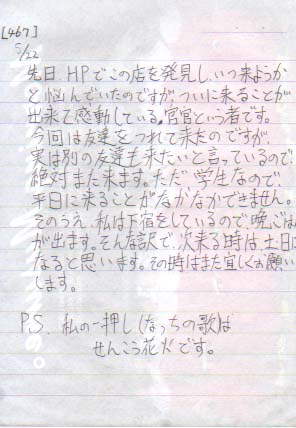 [467]
5/22
先日、HPでこの店を発見し、いつ来ようか
と悩んでいたのですが、ついに来ることが
出来て感動している。官官という者です。
今回は友達をつれて来たのですが、
実は別の友達も来たいと言っているので、
絶対また来ます。ただ、学生なので、
平日に来ることがなかなかできません。
そのうえ、私は下宿をしているので、晩ごはん
が出ます。そんな訳で、次来る時は、土日に
なると思います。その時はまた宜しくお願い
します。
P.S. 私の一押し(なっちの歌)は
せんこう花火です。